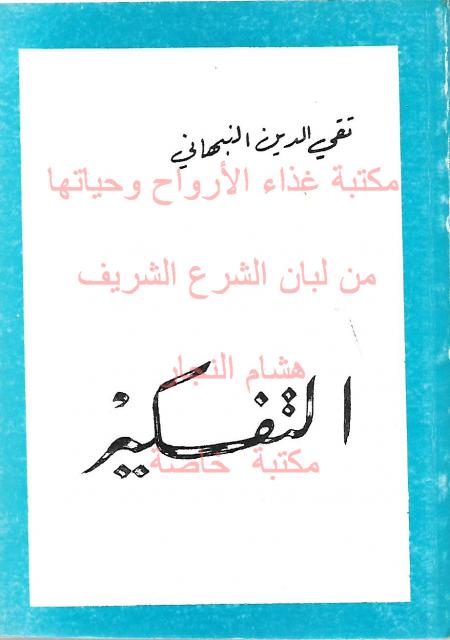 تقي الدين النبهاني
مكتبة غذاء الأرواح وحياتها
من لبان الشرع الشريف
هشام النجار
التفكير
مكتبة خاصة